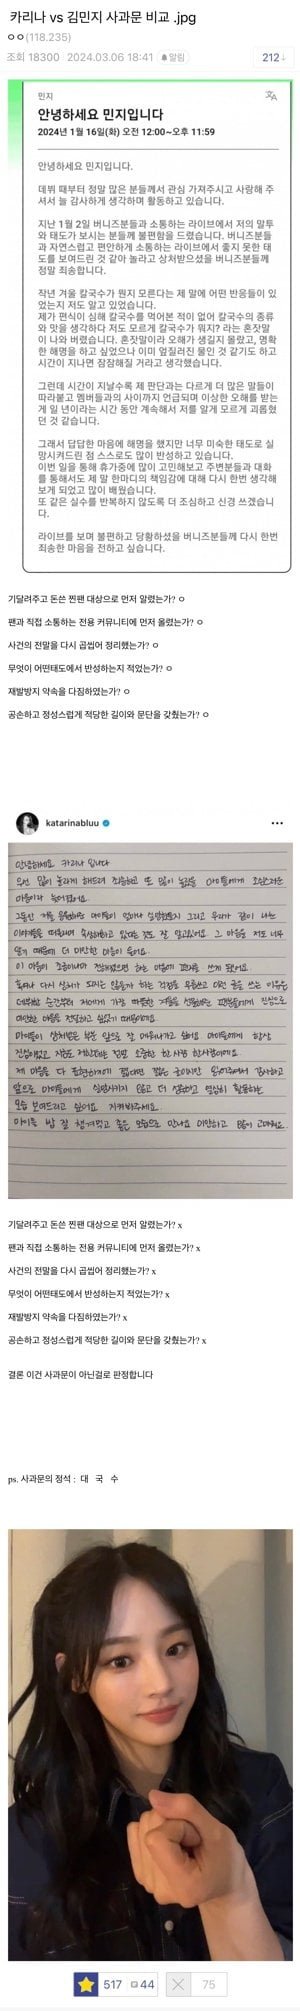 카리나 vs 김민지 사과문 비교 .jpg
ㅇㅇ(118.235)
조회 18300 2024.03.06 18:41 알림
212↓
민지
안녕하세요 민지입니다
2024년 1월 16일(화) 오전 12:00~오후 11:59
안녕하세요 민지입니다.
데뷔 때부터 정말 많은 분들께서 관심 가져주시고 사랑해 주
셔서 늘 감사하게 생각하며 활동하고 있습니다.
지난 1월 2일 버니즈분들과 소통하는 라이브에서 저의 말투
와 태도가 보시는 분들께 불편함을 드렸습니다. 버니즈분들
과 자연스럽고 편안하게 소통하는 라이브에서 좋지 못한 태
도를 보여드린 것 같아 놀라고 상처받으셨을 버니즈분들께
정말 죄송합니다.
작년 겨울 칼국수가 뭔지 모른다는 제 말에 어떤 반응들이 있
었는지 저도 알고 있었습니다.
제가 편식이 심해 칼국수를 먹어본 적이 없어 칼국수의 종류
와 맛을 생각하다 저도 모르게 칼국수가 뭐지? 라는 혼잣말
이 나와 버렸습니다. 혼잣말이라 오해가 생길지 몰랐고, 명확
한 해명을 하고 싶었으나 이미 엎질러진 물인 것 같기도 하고
시간이 지나면 잠잠해질 거라고 생각했습니다.
그런데 시간이 지날수록 제 판단과는 다르게 더 많은 말들이
따라붙고 멤버들과의 사이까지 언급되며 이상한 오해를 받는
게 일 년이라는 시간 동안 계속해서 저를 알게 모르게 괴롭혔
던 것 같습니다.
그래서 답답한 마음에 해명을 했지만 너무 미숙한 태도로 실
망시켜드린 점 스스로도 많이 반성하고 있습니다.
이번 일을 통해 휴가중에 많이 고민해보고 주변분들과 대화
를 통해서도 제 말 한마디의 책임감에 대해 다시 한번 생각해
보게 되었고 많이 배웠습니다.
또 같은 실수를 반복하지 않도록 더 조심하고 신경 쓰겠습니
다.
라이브를 보며 불편하고 당황하셨을 버니즈분들께 다시 한번
죄송한 마음을 전하고 싶습니다.
기달려주고 돈쓴 찐팬 대상으로 먼저 알렸는가? ㅇ
팬과 직접 소통하는 전용 커뮤니티에 먼저 올렸는가? ㅇ
사건의 전말을 다시 곱씹어 정리했는가? ㅇ
무엇이 어떤태도에서 반성하는지 적었는가? ㅇ
재발방지 약속을 다짐하였는가? ㅇ
공손하고 정성스럽게 적당한 길이와 문단을 갖췄는가? ㅇ
katarinabluu
안녕하세요 카리나 입니다
우선 많이 놀라게 해드려 죄송하고 또 많이 놀랐을 마이들에게 조심스러운
마음이라 늦어졌어요.
그동안 저를 응원해준 마이들이 얼마나 실망했을지 그리고 우리가 같이 나눈
이야기들을 떠올리며 속상해하고 있다는 것도 잘 알고있어요. 그 마음을 저도 너무
알기 때문에 더 미안한 마음이 들어요.
이 마음이 조금이나마 전해졌으면 하는 마음에 편지를 쓰게 됐어요.
혹여나 다시 상처가 되지는 않을까 하는 걱정을 무릅쓰고 이런 글을 쓰는 이유는
데뷔한 순간부터 저에게 가장 따뜻한 겨울을 선물해준 팬분들에게 진심으로
미안한 마음을 전달하고 싶었기 때문이에요.
마이들이 상처받은 부분 앞으로 잘 메워나가고 싶어요 마이들에게 항상
진심이었고, 지금도 저한테는 정말 소중한 한 사람 한사람이에요.
제 마음을 다 표현하기에 짧다면 짧은 글이지만 읽어주셔서 감사하고
앞으로 마이들에게 실망시키지 않고 더 성숙하고 열심히 활동하는
모습 보여드리고 싶어요 지켜봐주세요.
마이들 밥 잘 챙겨먹고 좋은 모습으로 만나요 미안하고 많이 고마워요.
기달려주고 돈쓴 찐팬 대상으로 먼저 알렸는가? x
팬과 직접 소통하는 전용 커뮤니티에 먼저 올렸는가? x
사건의 전말을 다시 곱씹어 정리했는가? x
무엇이 어떤태도에서 반성하는지 적었는가? x
재발방지 약속을 다짐하였는가? x
공손하고 정성스럽게 적당한 길이와 문단을 갖췄는가? x
결론 이건 사과문이 아닌걸로 판정합니다
ps. 사과문의 정석 : 대 국 수
517 44 75